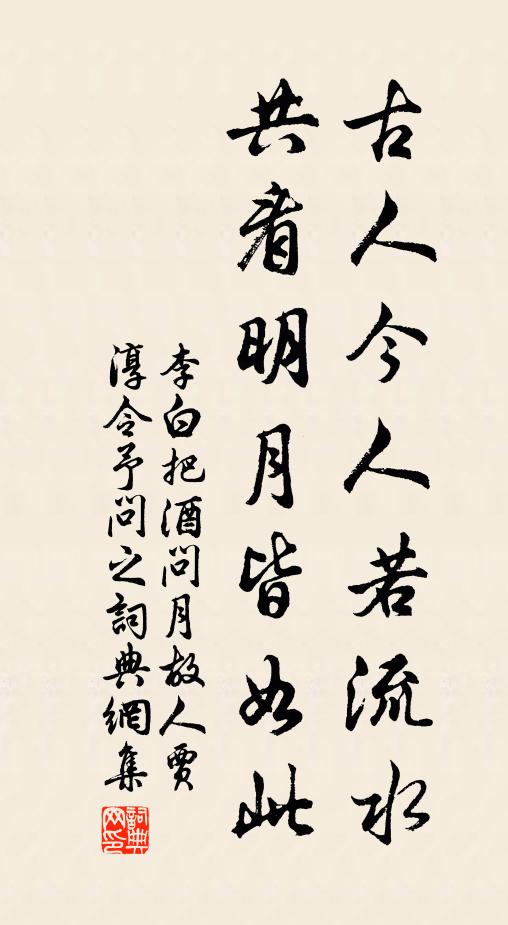 古人今人若流水
共看明月皆如此
李白把酒問月故人賈
淳令予問之詞典網集
詞典
網印